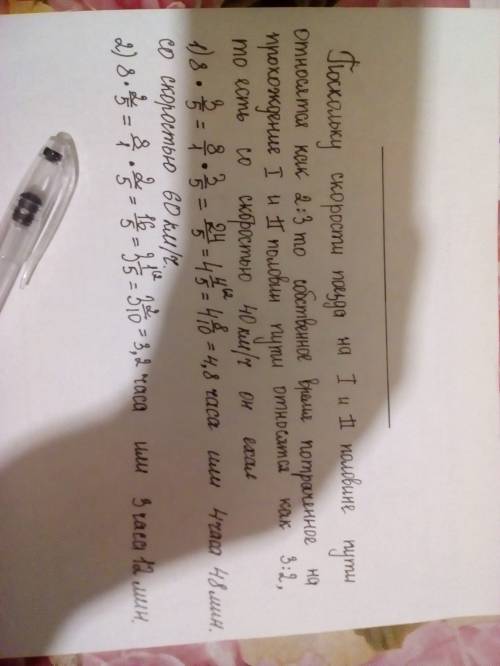 Поскольку скорости поезда на I и II половине пути
относятся как 2:3 то собственное время потраченное на
прохождение I и II половин пути относятся как 3:2,
то есть со скоростью 40 км/ч он ехал
1) 8 · 3/5 = 8/1 · 3/5 = 24/5 = 4 4/5 = 4 8/10 = 4,8 часа или 4 часа 48 мин.
со скоростью 60 км/ч
2) 8 · 2/5 = 8/1 · 2/5 = 16/5 = 3 1/5 = 3 2/10 = 3,2 часа или 3 часа 12 мин.